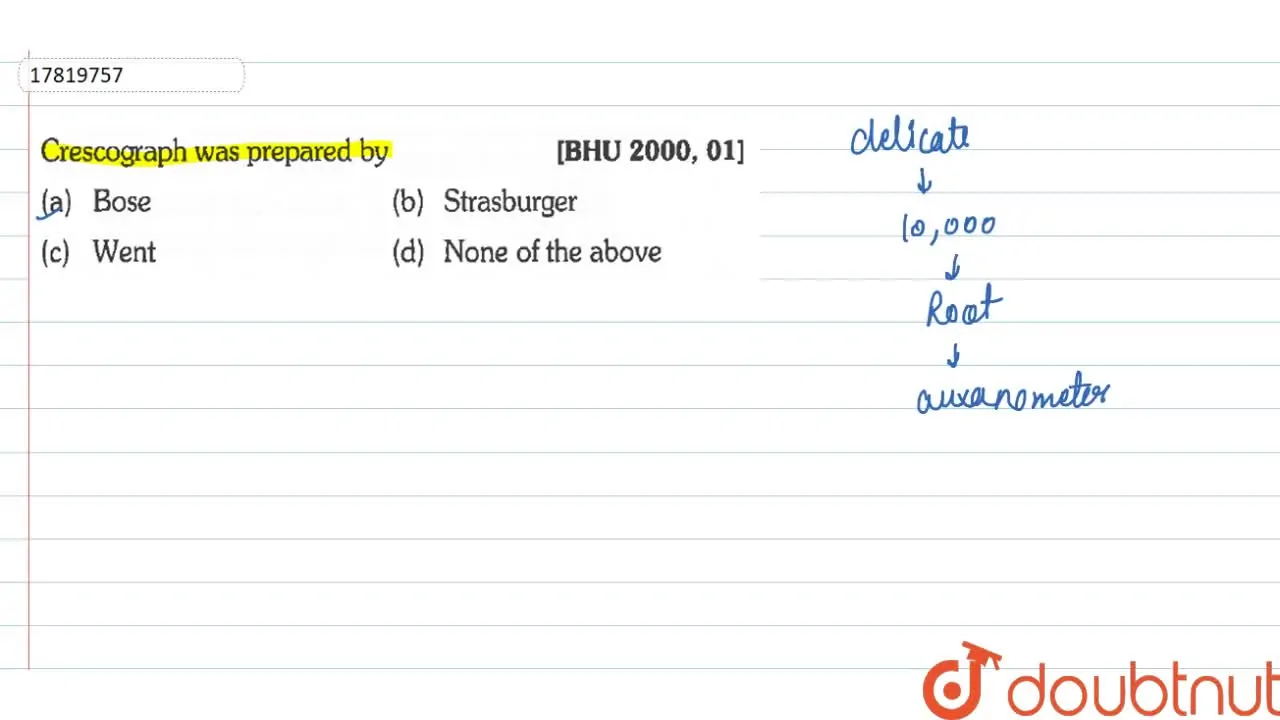 17819757
Crescograph was prepared by [BHU 2000, 01]
(a) Bose (b) Strasburger
(c) Went (d) None of the above
delicate
↓
10,000
↓
Root
↓
auxanometer
doubtnut